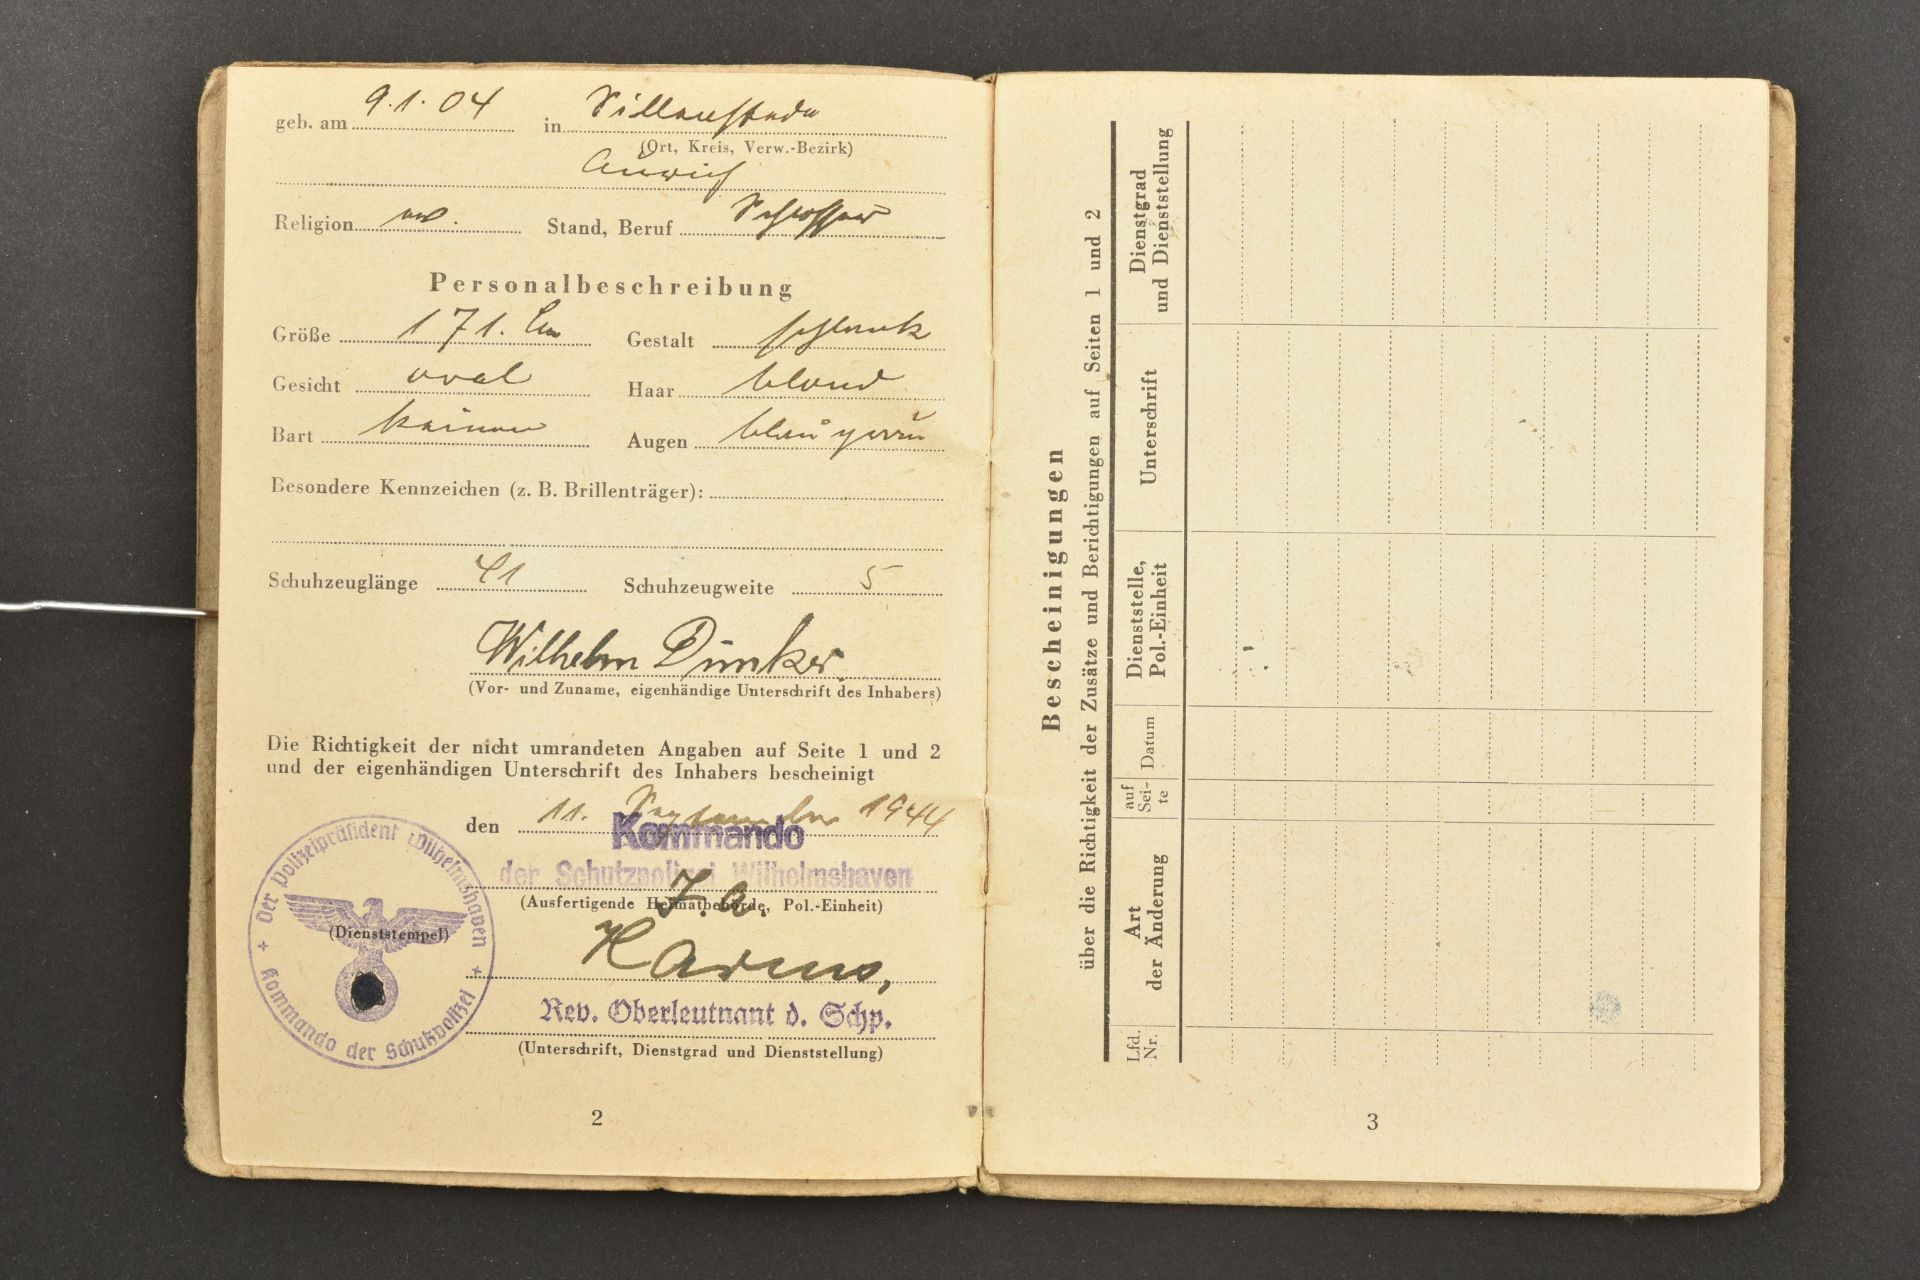 geb. am 9.1.04 in Sillenstede
(Ort, Kreis, Verw.-Bezirk)
Aurich
Religion ev. Stand, Beruf Schlosser
Personalbeschreibung
Größe 171. cm Gestalt schlank
Gesicht oval Haar blond
Bart keinen Augen blau grau
Besondere Kennzeichen (z. B. Brillenträger):
Schuhzeuglänge 41 Schuhzeugweite 5
Wilhelm Dunker
(Vor- und Zuname, eigenhändige Unterschrift des Inhabers)
Die Richtigkeit der nicht umrandeten Angaben auf Seite 1 und 2
und der eigenhändigen Unterschrift des Inhabers bescheinigt
den 11. September 1944
Kommando
der Schutzpolizei Wilhelmshaven
(Ausfertigende Heimatbehörde, Pol.-Einheit)
J.A.
Harms,
Rev. Oberleutnant d. Schp.
(Unterschrift, Dienstgrad und Dienststellung)
Der Polizeipräsident Wilhelmshaven
(Dienststempel)
+ Kommando der Schutzpolizei +
2
Bescheinigungen
über die Richtigkeit der Zusätze und Berichtigungen auf Seiten 1 und 2
Lfd. Nr.
Art der Änderung
auf Sei- te
Datum
Dienststelle, Pol.-Einheit
Unterschrift
Dienstgrad und Dienststellung
3